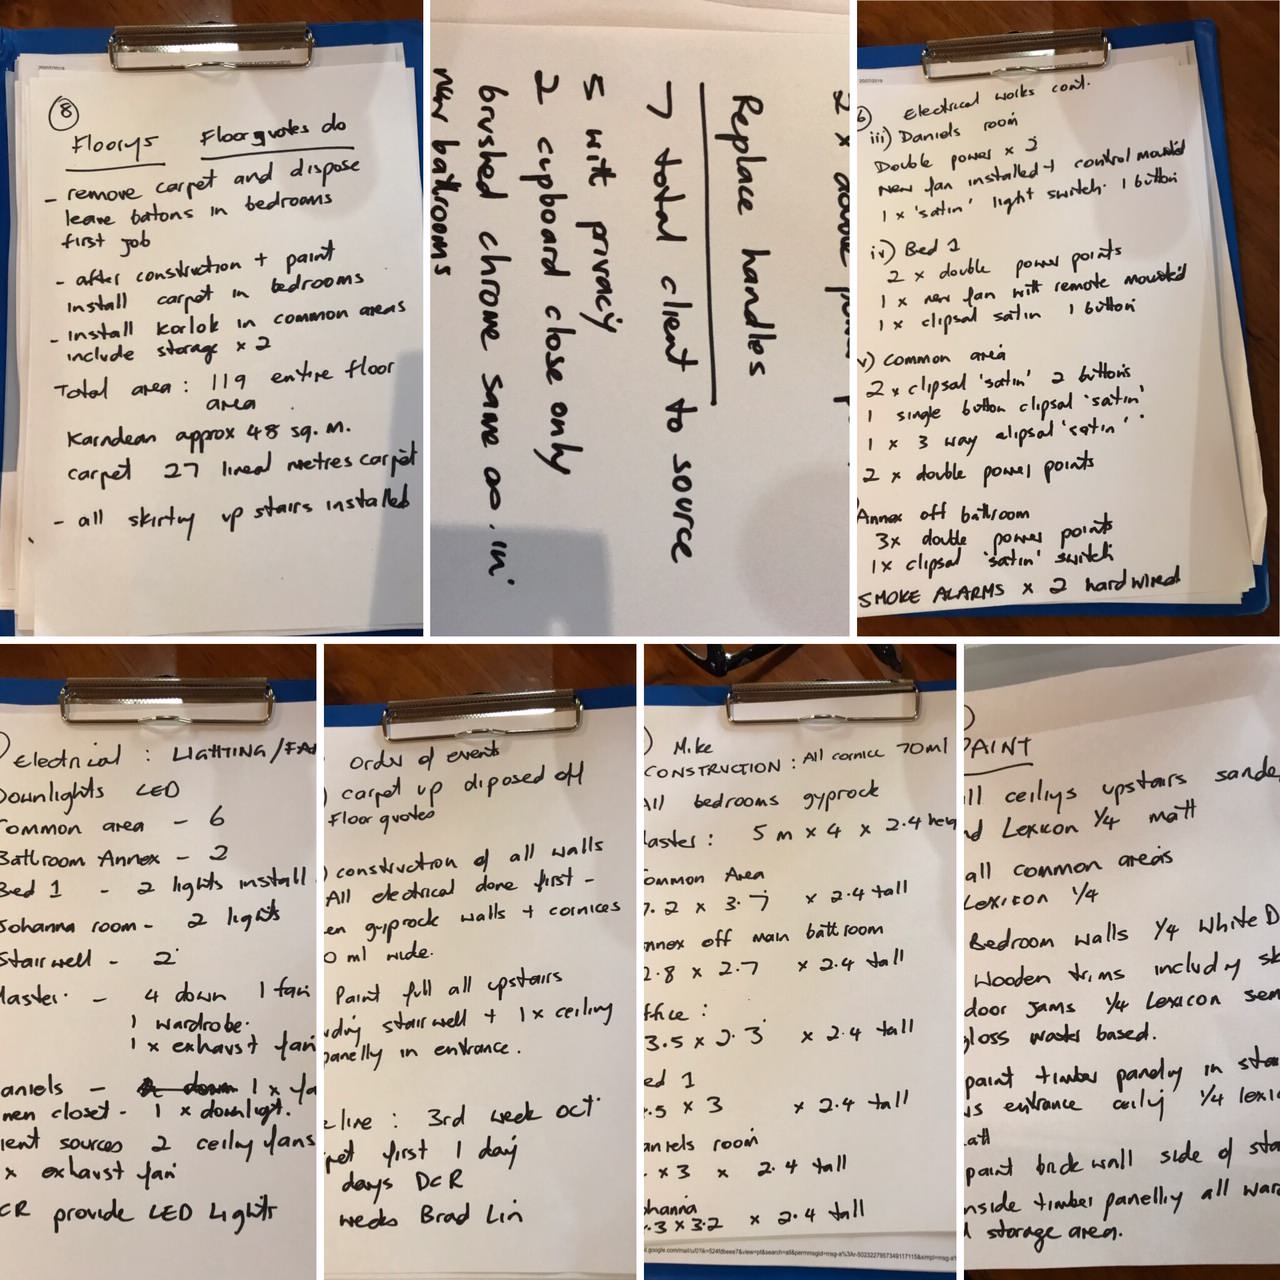 8
Floorys Floorquotes do
- remove carpet and dispose
leave batons in bedrooms
first job
- after construction + paint
install carpet in bedrooms
- install Korlok in common areas
include storage x 2
Total area : 119 entire floor
area
Karndean approx 48 sq. m.
carpet 27 lineal metres carpet
- all skirting up stairs installed
Replace handles
7 total client to source
5 with privacy
2 cupboard close only
brushed chrome same as in
new bathrooms
6 Electrical works cont.
iii) Daniels room
Double power x 2
New fan installed + control mounted
1 x 'satin' light switch. 1 button
iv) Bed 1
2 x double power points
1 x new fan with remote mounted
1 x clipsal satin 1 button
v) Common area
2 x clipsal 'satin' 2 buttons
1 single button clipsal 'satin'
1 x 3 way clipsal 'satin'
2 x double power points
Annex off bathroom
3x double power points
1x clipsal 'satin' switch
SMOKE ALARMS x 2 hardwired
) Electrical : LIGHTING/FA
Downlights LED
Common area - 6
Bathroom Annex - 2
Bed 1 - 2 lights install
Johanna room - 2 lights
Stairwell - 2
Master - 4 down 1 fan
1 wardrobe.
1 x exhaust fan
aniels - 1 x fa
nen closet - 1 x downlight.
ient sources 2 ceiling fans
x exhaust fan
CR provide LED Lights
Order of events
) carpet up disposed off
Floor quotes
) construction of all walls
All electrical done first -
en gyprock walls + cornices
0 ml wide.
Paint full all upstairs
uding stairwell + 1x ceiling
panelly in entrance.
eline : 3rd week oct
pet first 1 day
days DCR
weeks Brad Lin
) Mike
CONSTRUCTION : All cornice 70ml
All bedrooms gyprock
Master : 5 m x 4 x 2.4 heig
Common Area
7.2 x 3.7 x 2.4 tall
nnex off main bathroom
2.8 x 2.7 x 2.4 tall
ffice :
3.5 x 2.3 x 2.4 tall
ed 1
.5 x 3 x 2.4 tall
aniels room
x 3 x 2.4 tall
ohanna
.3 x 3.2 x 2.4 tall
PAINT
all ceilings upstairs sande
nd Lexicon 1/4 matt
all common areas
Lexicon 1/4
Bedroom walls 1/4 White D
Wooden trims including sk
door jams 1/4 Lexicon sem
gloss water based.
paint timber panelly in sta
us entrance ceiling 1/4 lexic
att
paint brick wall side of sta
nside timber panelly all war
d storage area.